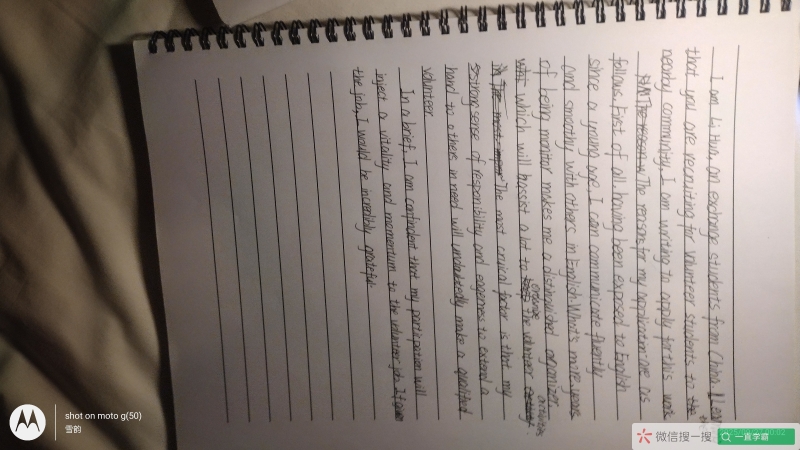 I am Li Hua, an exchange students from China. I lear
that you are recruiting for volunteer students to the
nearby community, I am writing to apply for this
The reasons for my application are as
follows. First of all, having been exposed to English
since a young age, I can communicate fluently
and smoothly with others in English. What's more, years
of being monitor makes me a distinguished organizer
which will hassist a lot to arrange the volunteer activities.
The most crucial factor is that my
strong sense of responsibility and eagerness to extend a
hand to others in need will undoubtedly make a qualified
volunteer.
In a brief, I am confident that my participation will
inject a vitality and momentum to the volunteer job. If given
the job, I would be incredibly grateful.
shot on moto g(50)
雪韵
微信搜一搜
一直学霸